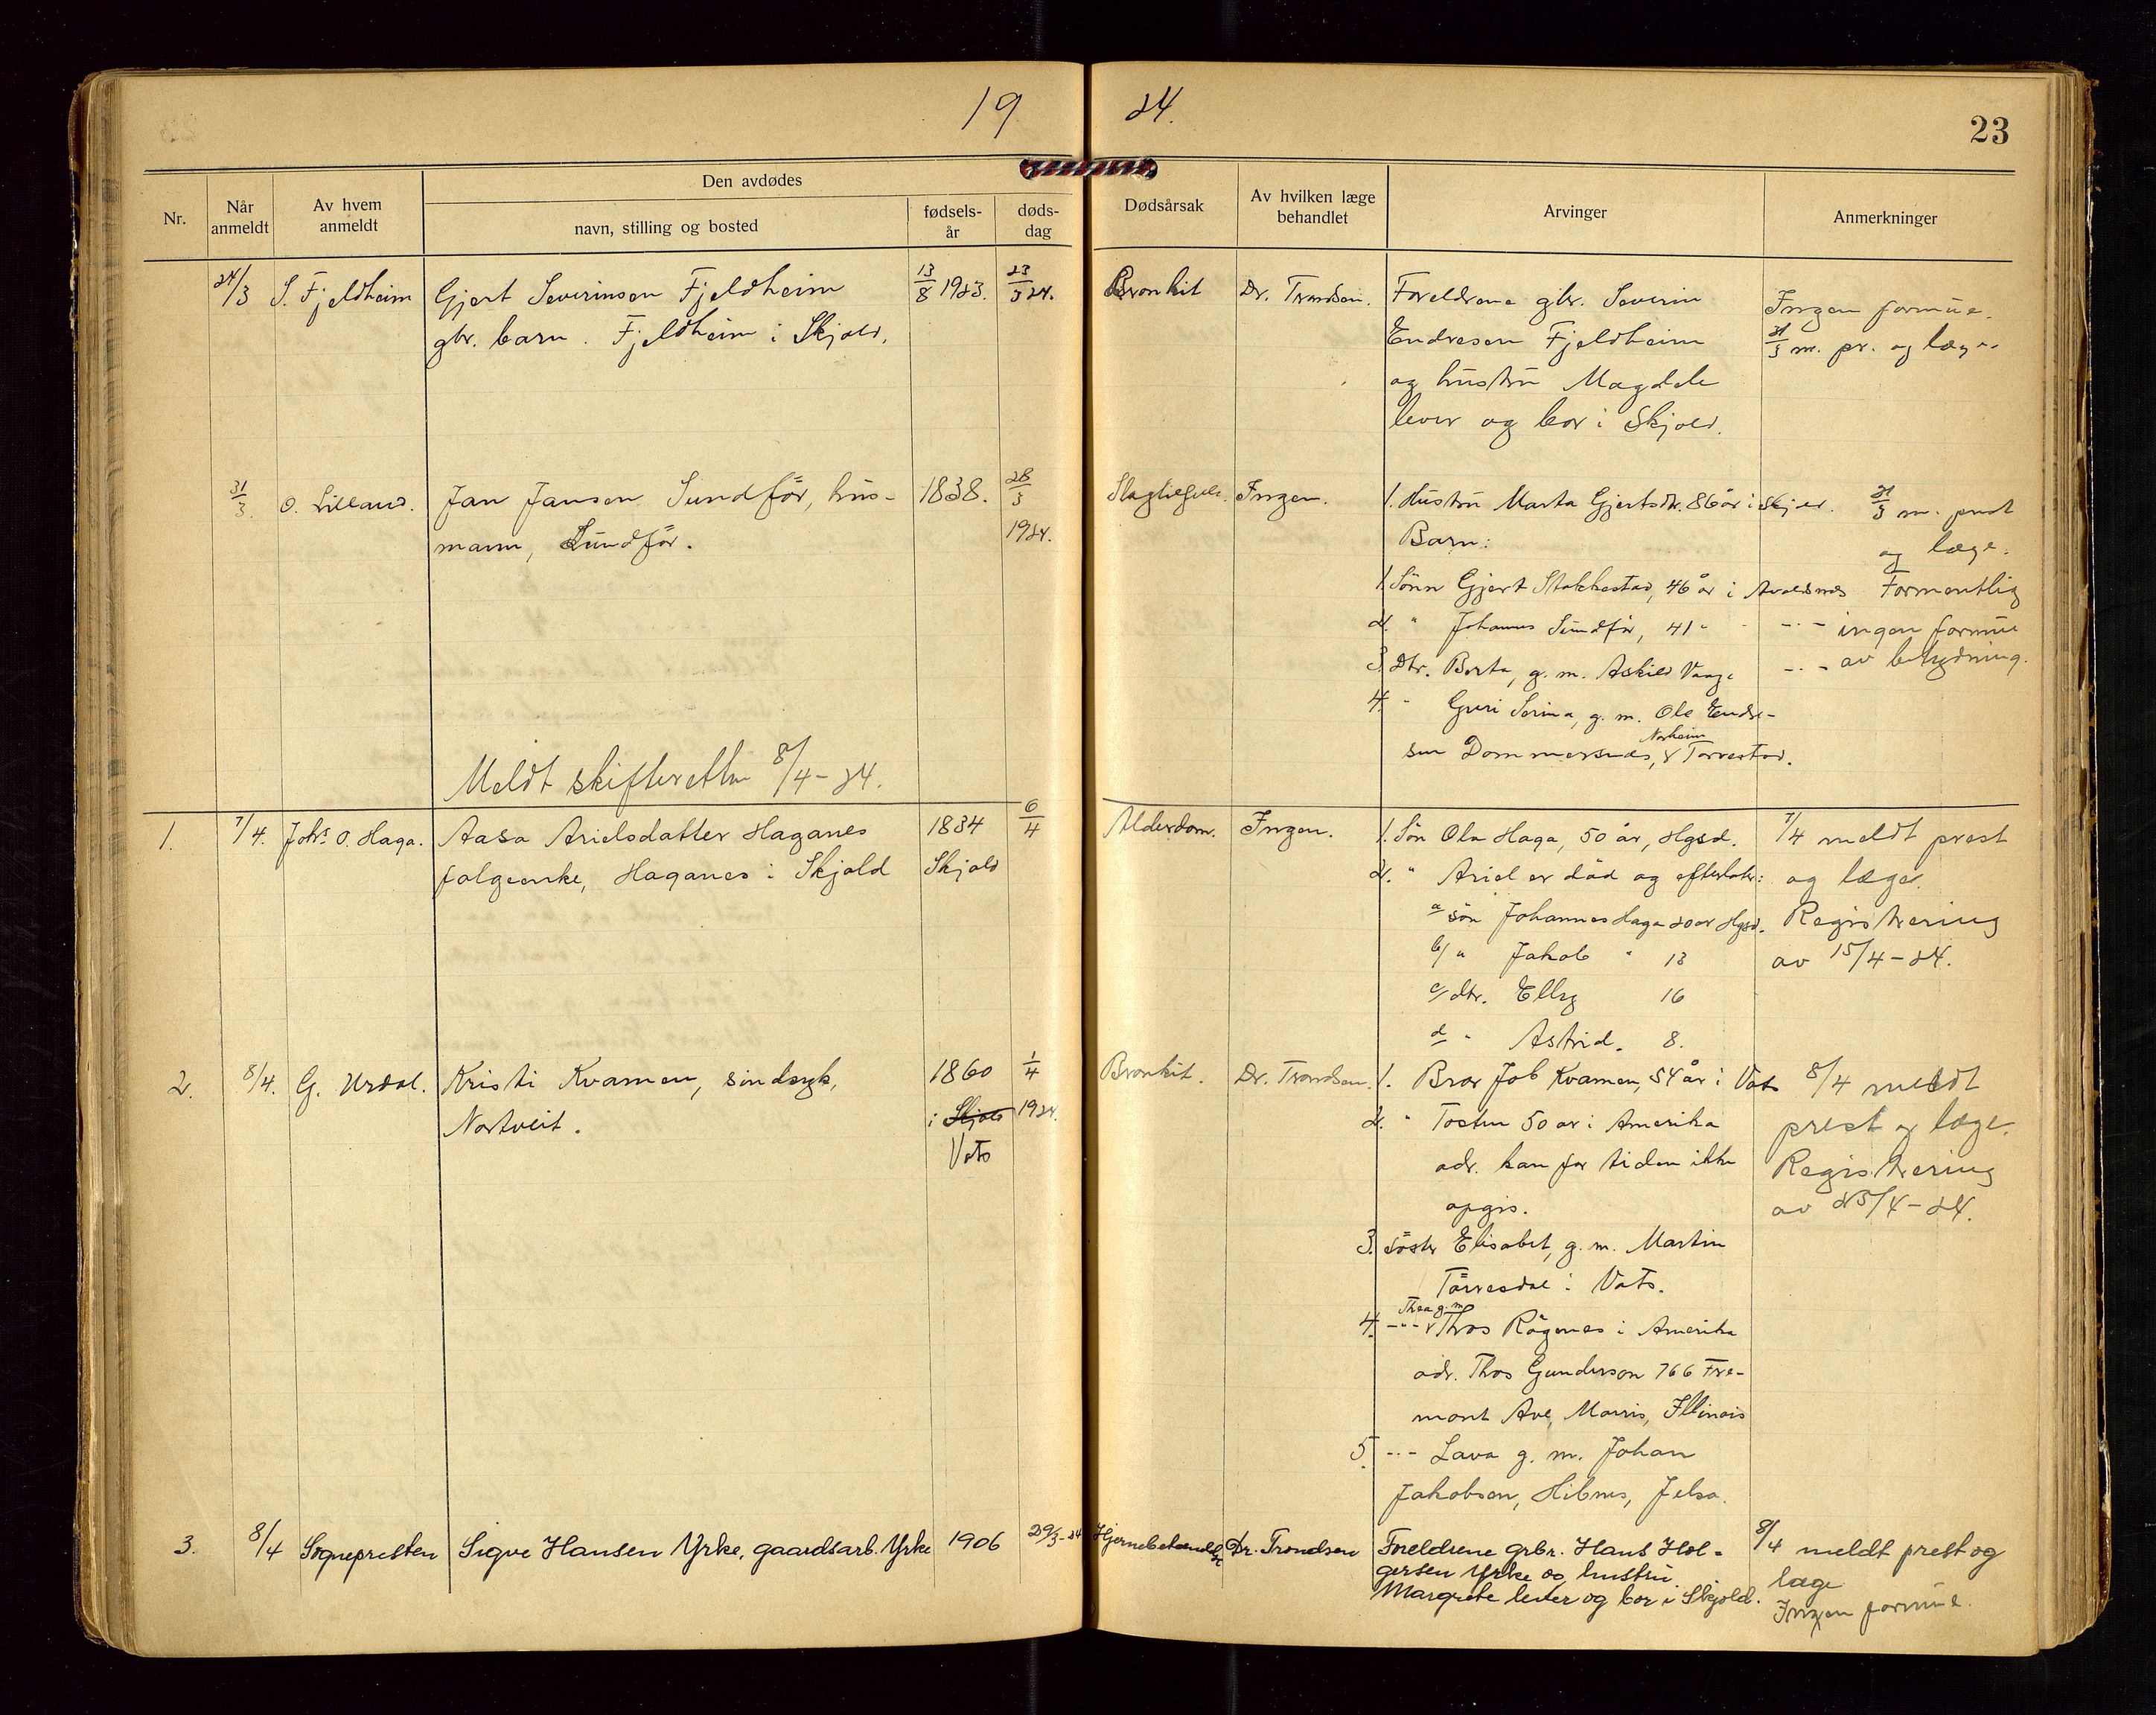 19 24.
23
Nr.
Når anmeldt
Av hvem anmeldt
Den avdødes
navn, stilling og bosted
fødsels-år
døds-dag
Dødsårsak
Av hvilken læge behandlet
Arvinger
Anmerkninger
24/3 S. Fjeldheim
Gjert Severinsen Fjeldheim
gbr. barn. Fjeldheim i Skjold.
13/8 1923.
23/3 24.
Bronkit
Dr. Trondsen.
Foreldrene gbr. Severin
Endresen Fjeldheim
og hustru Magdele
lever og bor i Skjold.
Ingen formue.
31/3 m. pr. og læge
31/3. O. Lilland.
Jan Jansen Sundför, hus-
mann, Sundför.
1838.
28/3
1924.
Ingen.
1. Hustru Marta Gjertsdtr. 86 år i Skjold.
Barn:
1. Sönn Gjert Stakkestad, 46 år i Avaldsnes
2. " Johannes Sundför, 41 " - " -
3. Dtr. Berta, g. m. Askild Vaage - " -
4. " Guri Serina, g. m. Ole Endre-
sen Dommersnes, Norheim Torvestad.
31/3 m. prest
og læge.
Formentlig
ingen formue
av betydning.
Meldt skifteretten 8/4-24.
1.
7/4. Johs. O. Haga.
Aasa Arielsdatter Haganes
folgeenke, Haganes i Skjold
1834
Skjold
6/4
Alderdom.
Ingen.
1. Sön Ola Haga, 50 år, Hgsd.
2. " Ariel er död og efterlater:
a sön Johannes Haga 20 år Hgsd.
b/ " Jakob " 18
c/ dtr. Elling 16
d " Astrid. 8.
7/4 meldt prest
og læge.
Registrering
av 15/4-24.
2.
8/4. G. Urdal.
Kristi Kvamen, sindsyk,
Nortveit.
1860
i Skjold
Vats
1/4
1924.
Bronkit.
Dr. Trondsen.
1. Bror Job Kvamen, 54 år i Vats
2. " Tosten 50 år i Amerika
adr. kan for tiden ikke
opgis.
3. söster Elisabet, g. m. Martin
Törresdal i Vats.
4. - " - Thea g. m. Thos Rögenes i Amerika
adr. Thos Gunderson 766 Fre-
mont Ave, Morris, Illinois
5. - " - Lava g. m. Johan
Jakobsen, Hibnes, Jelsa.
8/4 meldt
prest og læge.
Registrering
av 25/4-24.
3.
8/4 Sognepresten
Sigve Hansen Yrke, gaardsarb. Yrke
1906
29/3-24
Dr. Trondsen
Foreldrene gbr. Hans Hol-
gersen Yrke og hustru
Margrete lever og bor i Skjold.
8/4 meldt prest og
læge
Ingen formue.